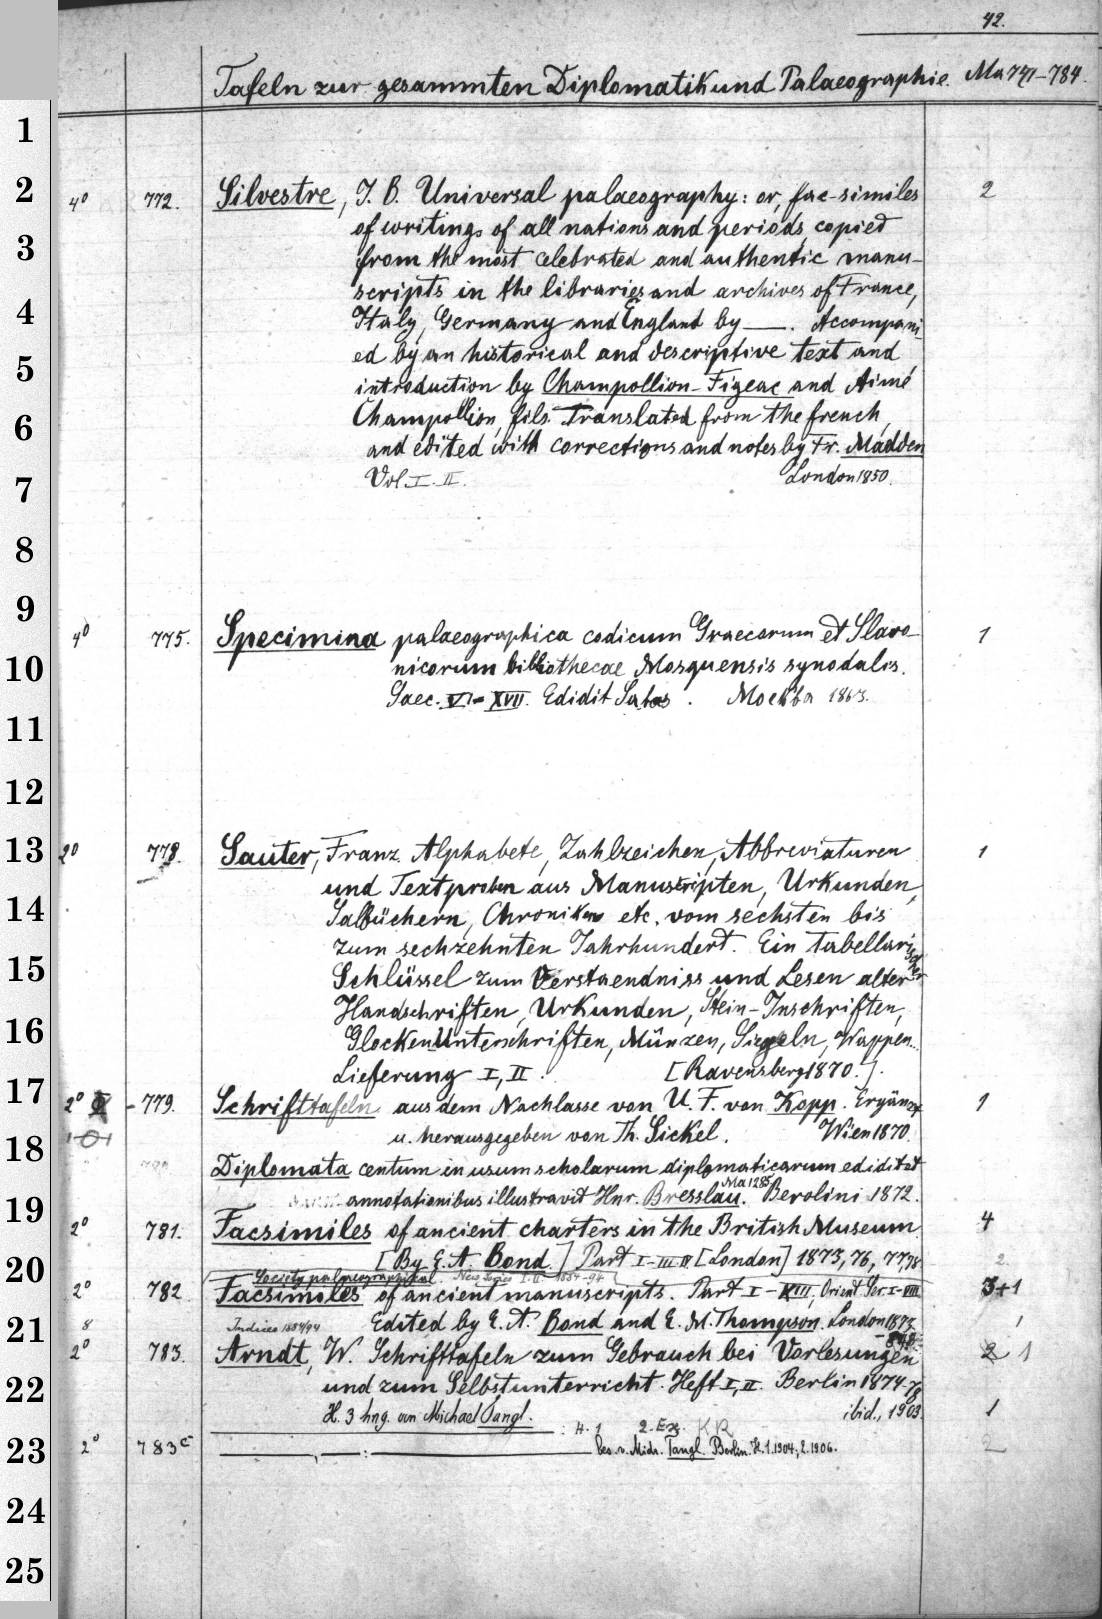 42.
Tafeln zur gesammten Diplomatik und Palaeographie. Ma 771-784.
1
2
4° 772. Silvestre, J. B. Universal palaeography: or, fac-similes 2
of writings of all nations and periods, copied
3
from the most celebrated and authentic manu-
scripts in the libraries and archives of France,
4
Italy, Germany and England by ——. Accompani
ed by an historical and descriptive text and
5
introduction by Champollion-Figeac and Aimé
Champollion, fils. Translated from the french,
6
and edited with corrections and notes by Fr. Madden
Vol. I. II. London 1850.
7
8
9
4° 775. Specimina palaeographica codicum Graecorum et Slavo- 1
nicorum bibliothecae Mosquensis synodalis.
10
Saec. VI-XVII. Edidit Sabas. Москва 1863.
11
12
13
2° 778. Sauter, Franz. Alphabete, Zahlzeichen, Abbreviaturen 1
und Textproben aus Manuscripten, Urkunden,
14
Salbüchern, Chroniken etc. vom sechsten bis
zum sechzehnten Jahrhundert. Ein tabellarischer
15
Schlüssel zum Verstaendniss und Lesen alter
Handschriften, Urkunden, Stein-Inschriften,
16
Glocken Unterschriften, Münzen, Siegeln, Wappen..
Lieferung I, II. [Ravensberg 1870.].
17
2° - 779. Schrifttafeln aus dem Nachlasse von U. F. von Kopp. Ergänzt 1
u. herausgegeben von Th. Sickel. Wien 1870.
18
Diplomata centum in usum scholarum diplomaticarum edidit et
Ma 1285
annotationibus illustravit Hnr. Bresslau. Berolini 1872.
19
2° 781. Facsimiles of ancient charters in the British Museum 4
[By E. A. Bond.] Part I-III IV [London] 1873, 76, 77, 78 2
20
Society palaeographical. New Series I. II. 1884-94
2° 782. Facsimiles of ancient manuscripts. Part I-XIII, Orient. Ser. I-VIII 3+1
21
8 Indices 1884/94 Edited by E. A. Bond and E. M. Thompson. London 1873
2° 783. Arndt, W. Schrifttafeln zum Gebrauch bei Vorlesungen 2 1
22
und zum Selbstunterricht. Heft I, II. Berlin 1874-78
H. 3 hng. von Michael Tangl. ibid., 1903. 1
: H. 1 2. Ex. KR
23
2° 783c ——, —: —— bes. v. Mich. Tangl. Berlin. H. 1. 1904; 2. 1906. 2
24
25